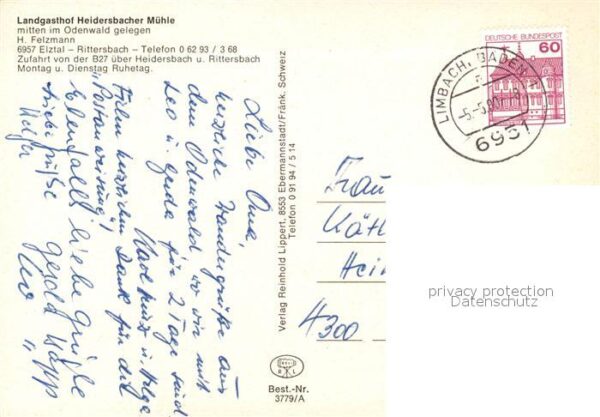 Landgasthof Heidersbacher Mühle
mitten im Odenwald gelegen
H. Felzmann
6957 Elztal – Rittersbach – Telefon 0 62 93 / 3 68
Zufahrt von der B27 über Heidersbach u. Rittersbach
Montag u. Dienstag Ruhetag.
Liebe Oma,
herzliche Wandergrüße aus
dem Odenwald wo wir mit
Leo u. Gerda für 2 Tage sind
Karlheinz u. Helga
Vielen herzlichen Dank für die
"Postanweisung"!
Ebenfalls liebe Grüße
liebe Grüße
Helga
Verlag Reinhold Lippert, 8553 Ebermannstadt/Fränk. Schweiz
Telefon 0 91 94 / 5 14
Best.-Nr.
3779/A
DEUTSCHE BUNDESPOST
60
LIMBACH, BADEN
6951
Frau
Käth
Hein
4300
privacy protection
Datenschutz